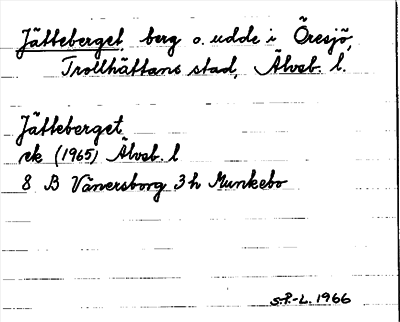 Jätteberget, berg o. udde i Öresjö,
Trollhättans stad, Älvsb. l.
Jätteberget
ek (1965) Älvsb. l
8 B Vänersborg 3 h Munkebo
S.P.-L. 1966